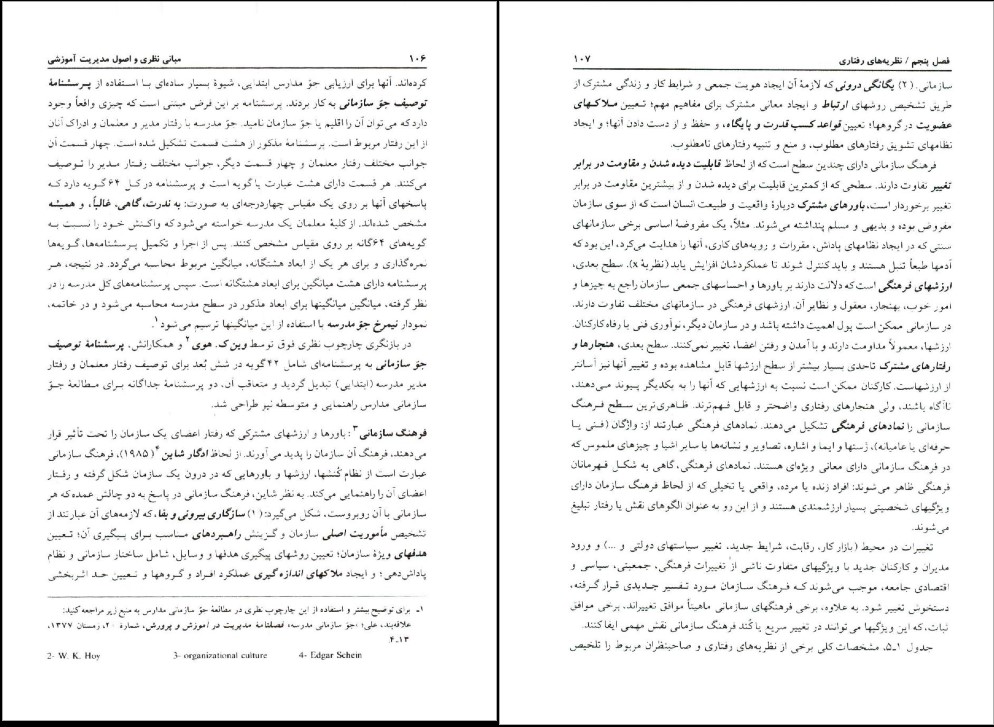 ۱۰۶ مبانی نظری و اصول مدیریت آموزشی
کرده‌اند. آنها برای ارزیابی جوّ مدارس ابتدایی، شیوهٔ بسیار ساده‌ای بـا اسـتفاده از پـرسشنامهٔ
توصیف جوّ سازمانی به کار بردند. پرسشنامه بر این فرض مبتنی است که چیزی واقعاً وجود
دارد که می‌توان آن را اقلیم یا جوّ سازمان نامید. جوّ مدرسه با رفتار مدیر و معلمان و ادراک آنان
از این رفتار مربوط است. پرسشنامهٔ مذکور از هشت قسمت تشکیل شده است. چهار قسمت آن
جوانب مختلف رفتار معلمان و چهار قسمت دیگر، جوانب مختلف رفـتار مـدیر را تـوصیف
می‌کنند. هر قسمت دارای هشت عبارت یا گویه است و پرسشنامه در کـل ۶۴ گـویه دارد کـه
پاسخهای آنها بر روی یک مقیاس چهاردرجه‌ای به صورت: به ندرت، گاهی، غالباً، و همیشه
مشخص شده‌اند. از کلیهٔ معلمان یک مدرسه خواسته می‌شود که واکنش خـود را نسـبت بـه
گویه‌های ۶۴گانه بر روی مقیاس مشخص کنند. پس از اجرا و تکمیل پـرسشنامه‌ها، گـویه‌ها
نمره‌گذاری و برای هر یک از ابعاد هشتگانه، میانگین مربوط محاسبه می‌گردد. در نتیجه، هـر
پرسشنامه دارای هشت میانگین برای ابعاد هشتگانه است. سپس پرسشنامه‌های کل مدرسه را در
نظر گرفته، میانگین میانگینها برای ابعاد مذکور در سطح مدرسه محاسبه می‌شود و در خاتمه،
نمودار نیمرخ جوّ مدرسه با استفاده از این میانگینها ترسیم می‌شود۱.
در بازنگری چارچوب نظری فوق توسط وین ک. هوی۲ و همکارانش، پرسشنامهٔ توصیف
جوّ سازمانی به پرسشنامه‌ای شامل ۴۲گویه در شش بُعد برای توصیف رفتار معلمان و رفتار
مدیر مدرسه (ابتدایی) تبدیل گردید و متعاقب آن، دو پرسشنامهٔ جداگانه بـرای مـطالعهٔ جـوّ
سازمانی مدارس راهنمایی و متوسطه نیز طراحی شد.
فرهنگ سازمانی۳: باورها و ارزشهای مشترکی که رفتار اعضای یک سازمان را تحت تأثیر قرار
می‌دهند، فرهنگ آن سازمان را پدید می‌آورند. از لحاظ ادگار شاین۴ (۱۹۸۵)، فرهنگ سازمانی
عبارت است از نظام کُنشها، ارزشها و باورهایی که در درون یک سازمان شکل گرفته و رفـتار
اعضای آن را راهنمایی می‌کند. به نظر شاین، فرهنگ سازمانی در پاسخ به دو چالش عمده که هر
سازمانی با آن روبروست، شکل می‌گیرد: (۱) سازگاری بیرونی و بقا، که لازمه‌های آن عبارتند از
تشخیص مأموریت اصلی سازمان و گـزینش راهبردهای مناسب بـرای پـیگیری آن؛ تـعیین
هدفهای ویژهٔ سازمان؛ تعیین روشهای پیگیری هدفها و وسایل، شامل ساختار سازمانی و نظام
پاداش‌دهی؛ و ایجاد ملاکهای اندازه‌گیری عملکرد افـراد و گـروهها و تـعیین حـد اثـربخشی
۱ـ برای توضیح بیشتر و استفاده از این چارچوب نظری در مطالعهٔ جوّ سازمانی مدارس به منبع زیر مراجعه کنید:
علاقه‌بند، علی؛ «جوّ سازمانی مدرسه»، فصلنامهٔ مدیریت در آموزش و پرورش، شمارهٔ ۲۰، زمستان ۱۳۷۷،
۱۳-۴.
2- W. K. Hoy 3- organizational culture 4- Edgar Schein
فصل پنجم / نظریه‌های رفتاری ۱۰۷
سازمانی. (۲) یگانگی درونی که لازمهٔ آن ایجاد هویت جمعی و شرایط کار و زندگی مشترک از
طریق تشخیص روشهای ارتباط و ایجاد معانی مشترک برای مفاهیم مهم؛ تـعیین مـلاکهای
عضویت در گروهها؛ تعیین قواعد کسب قدرت و پایگاه، و حفظ و از دست دادن آنها؛ و ایجاد
نظامهای تشویق رفتارهای مطلوب، و منع و تنبیه رفتارهای نامطلوب.
فرهنگ سازمانی دارای چندین سطح است که از لحاظ قابلیت دیده شدن و مقاومت در برابر
تغییر تفاوت دارند. سطحی که از کمترین قابلیت برای دیده شدن و از بیشترین مقاومت در برابر
تغییر برخوردار است، باورهای مشترک دربارهٔ واقعیت و طبیعت انسان است که از سوی سازمان
مفروض بوده و بدیهی و مسلم پنداشته می‌شوند. مثلاً، یک مفروضهٔ اساسی برخی سازمانهای
سنتی که در ایجاد نظامهای پاداش، مقررات و رویه‌های کاری، آنها را هدایت می‌کرد، این بود که
آدمها طبعاً تنبل هستند و باید کنترل شوند تا عملکردشان افزایش یابد (نظریهٔ x). سطح بعدی،
ارزشهای فرهنگی است که دلالت دارند بر باورها و احساسهای جمعی سازمان راجع به چیزها و
امور خوب، بهنجار، معقول و نظایر آن. ارزشهای فرهنگی در سازمانهای مختلف تفاوت دارند.
در سازمانی ممکن است پول اهمیت داشته باشد و در سازمان دیگر، نوآوری فنی یا رفاه کارکنان.
ارزشها، معمولاً مداومت دارند و با آمدن و رفتن اعضا، تغییر نمی‌کنند. سطح بعدی، هنجارها و
رفتارهای مشترک تا حدی بسیار بیشتر از سطح ارزشها قابل مشاهده بوده و تغییر آنها نیز آسانتر
از ارزشهاست. کارکنان ممکن است نسبت به ارزشهایی که آنها را به یکدیگر پـیوند مـی‌دهند،
ناآگاه باشند، ولی هنجارهای رفتاری واضحتر و قابل فـهم‌ترند. ظـاهری‌ترین سـطح فـرهنگ
سازمانی را نمادهای فرهنگی تشکیل می‌دهند. نمادهای فرهنگی عبارتند از: واژگان (فـنی یـا
حرفه‌ای یا عامیانه)، ژستها و ایما و اشاره، تصاویر و نشانه‌ها یا سایر اشیا و چیزهای ملموس که
در فرهنگ سازمانی دارای معانی ویژه‌ای هستند. نمادهای فرهنگی، گاهی به شکـل قـهرمانان
فرهنگی ظاهر می‌شوند: افراد زنده یا مرده، واقعی یا تخیلی که از لحاظ فرهنگ سازمان دارای
ویژگیهای شخصیتی بسیار ارزشمندی هستند و از این رو به عنوان الگوهای نقش یا رفتار تبلیغ
می‌شوند.
تغییرات در محیط (بازار کار، رقابت، شرایط جدید، تغییر سیاستهای دولتی و ...) و ورود
مدیران و کارکنان جدید با ویژگیهای متفاوت ناشی از تغییرات فرهنگی، جمعیتی، سیاسی و
اقتصادی جامعه، موجب می‌شوند کـه فـرهنگ سـازمان مـورد تـفسیر جـدیدی قـرار گـرفته،
دستخوش تغییر شود. به علاوه، برخی فرهنگهای سازمانی ماهیتاً موافق تغییراند، برخی موافق
ثبات، که این ویژگیها می‌توانند در تغییر سریع یا کُند فرهنگ سازمانی نقش مهمی ایفا کنند.
جدول ۱ـ۵، مشخصات کلی برخی از نظریه‌های رفتاری و صاحبنظران مربوط را تلخیص